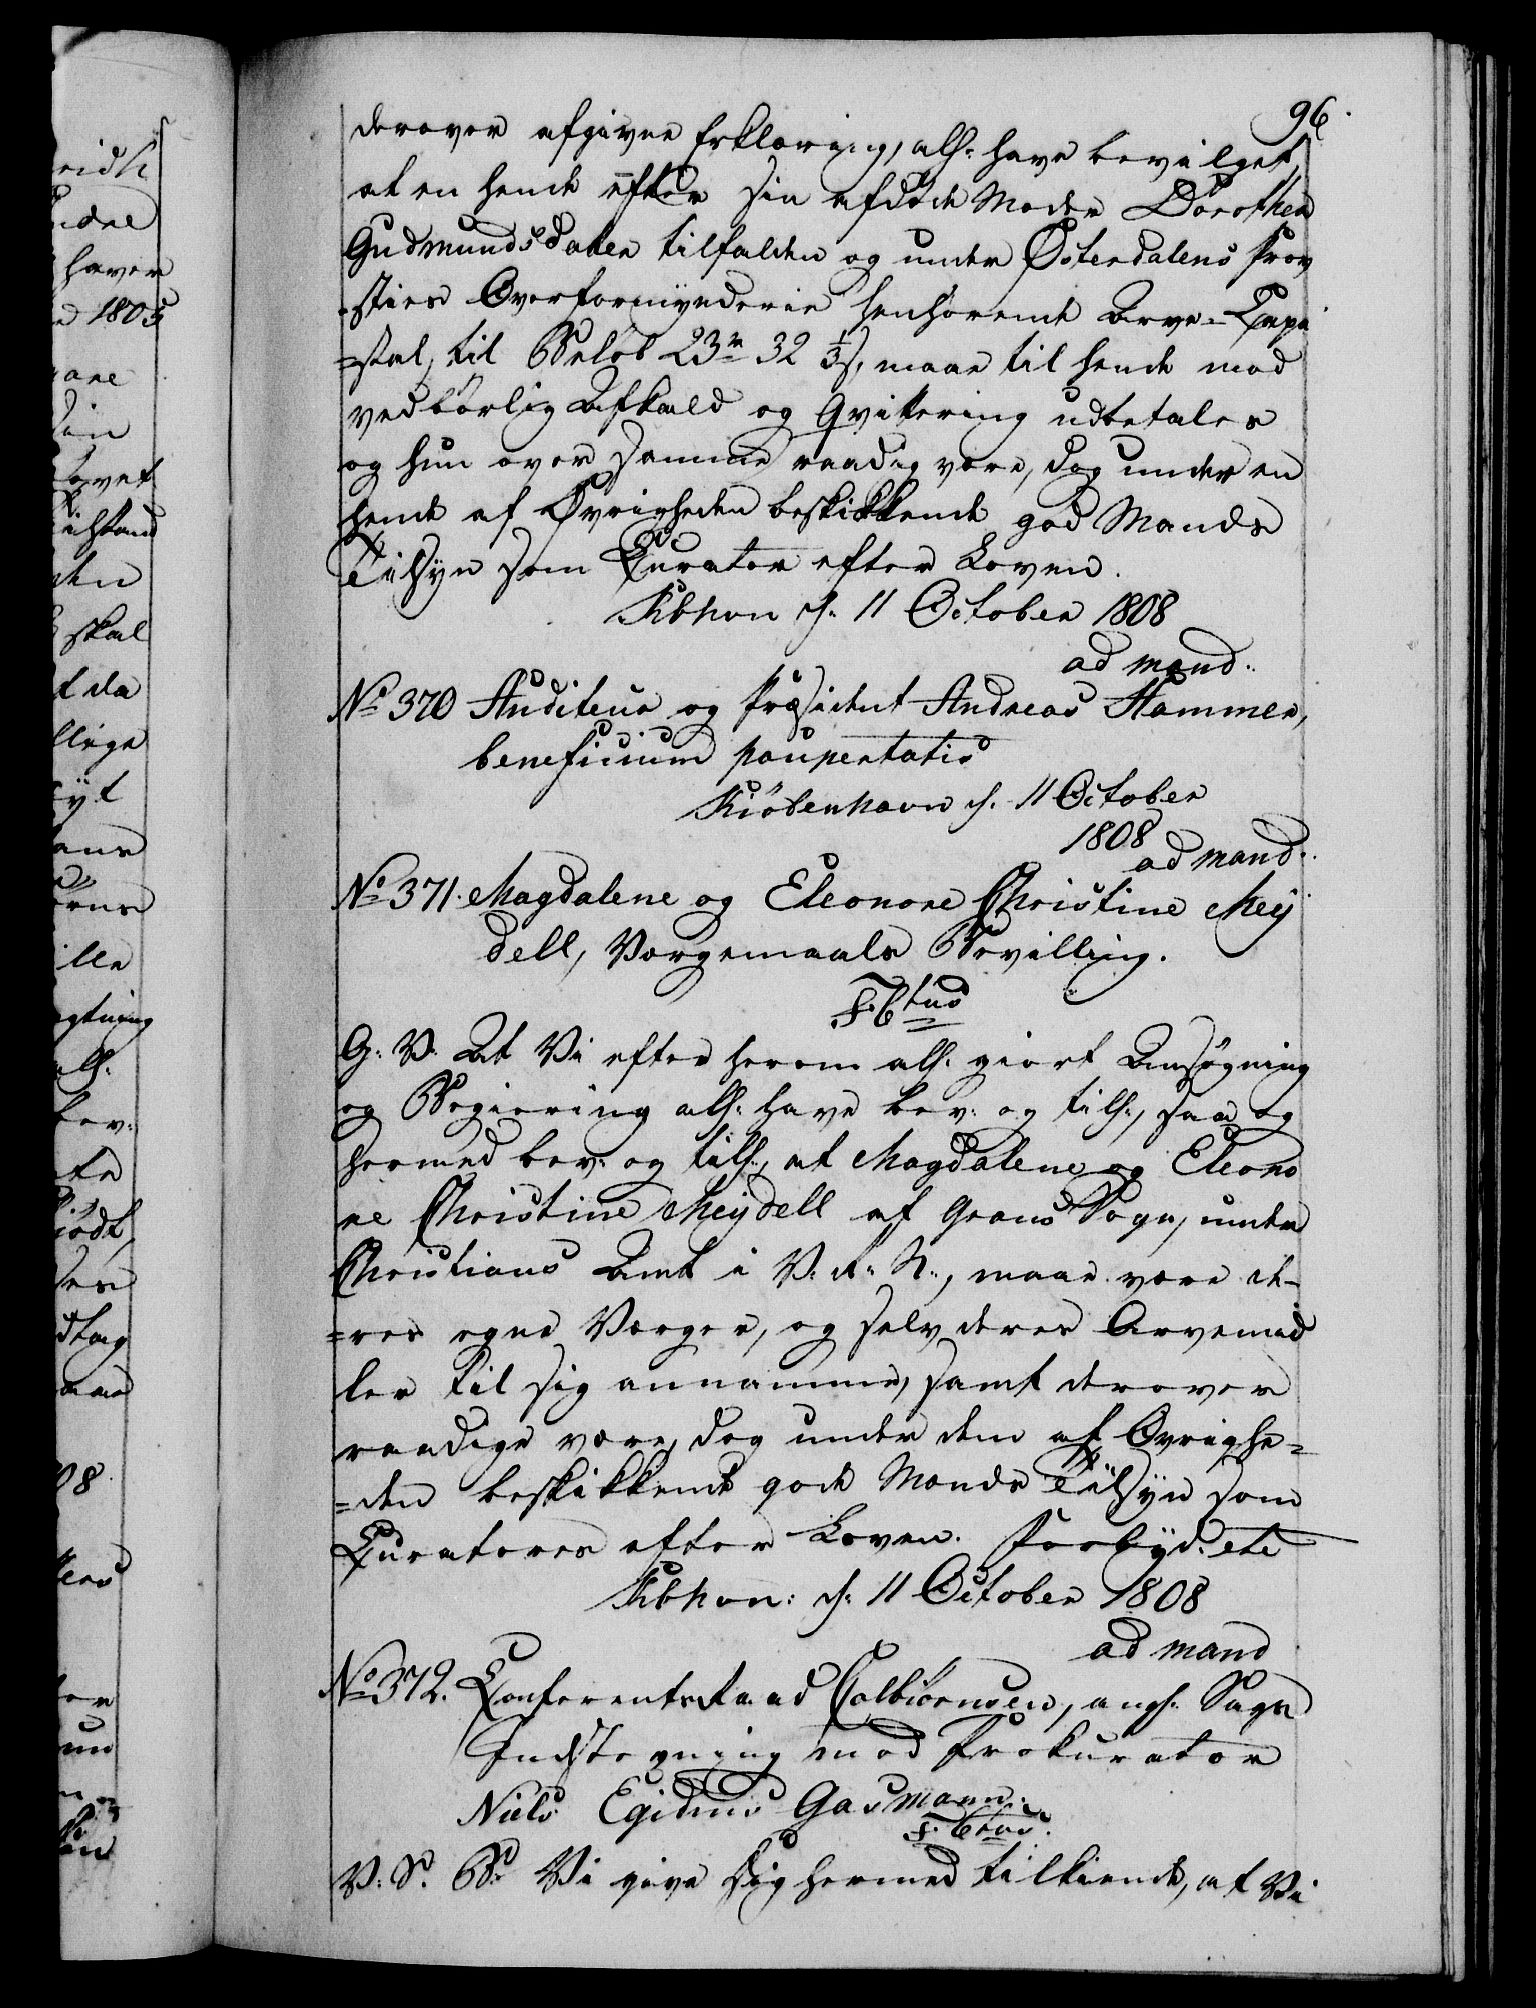 96.
derover afgivne Erklæring, all: have bevilget,
at en hende efter sin afdøde Moder Dorothea
Gudmundsdatter tilfalden og under Østerdalens Prov
-sties Overformynderie henhørende Arve-Capi
=tal, til Beløb 23 rd 32 1/3 s, maae til hende mod
vedbørlig Afkald og Qvittering udbetales
og hun over samme raadig være, dog under en
hende af Øvrigheden beskikkende god Mands
Tilsÿn som Curator efter Loven.
Kbhvn d: 11 October 1808
ad mand:
No 370 Auditeur og Præsident Andreas Hammer,
beneficium paupertatis
Kiøbenhavn d. 11 October
1808
ad mand:
No 371. Magdalene og Eleonore Christine Meÿ
dell, Værgemaals Bevilling.
F. Ctus
G: V: At Vi efter herom all: giort Ansøgning
og Begiering all: have bev: og till:, saa og
hermed bev: og till:, at Magdalene og Eleono
re Christine Meÿdell af Grans Sogn, under
Christians Amt i V. R. N., maae være de-
=res egne Værger, og selv deres Arvemid
ler til sig annamme, samt derover
raadige være, dog under dem af Øvrighe=
=den beskikkende gode Mænds Tilsÿn som
Curatores efter Loven. Forbÿd. etc
Kbhvn: d: 11 October 1808
ad mand
No 372. Conferentsraad Colbiørnsen, ang: Sags
Indstevning mod Prokurator
Niels Egidius Gasmann.
F. Ctus.
V: S. B: Vi give Dig hermed tilkiende, at Vi